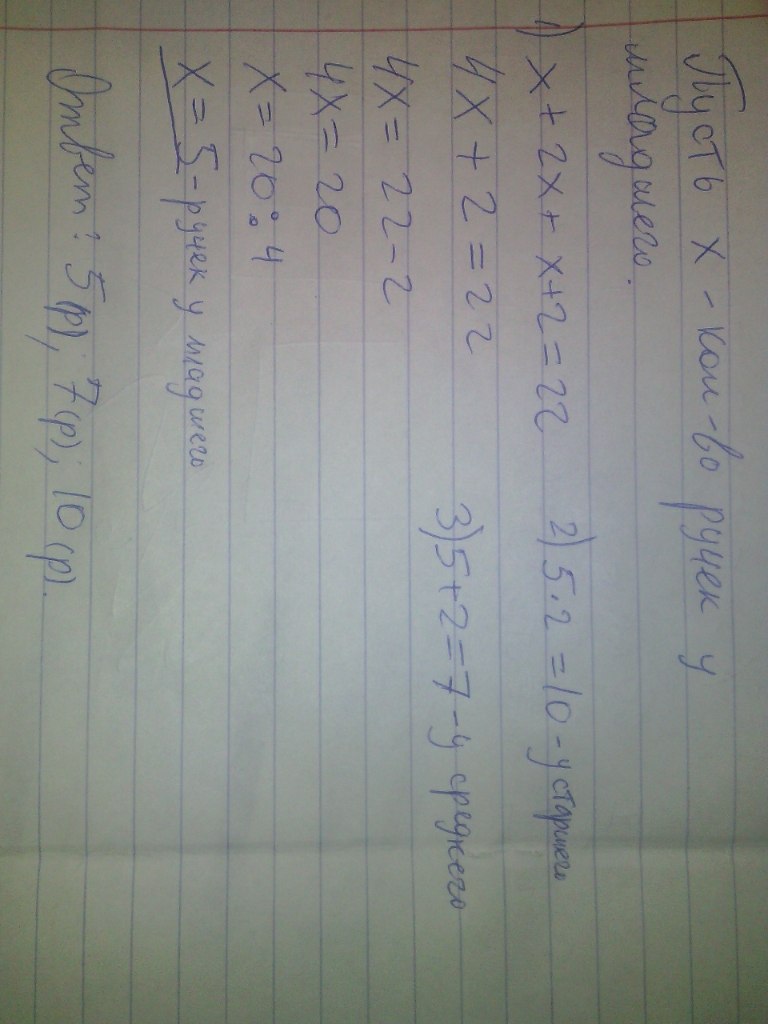 Пусть х - кол-во ручек у
младшего.
1) х + 2х + х+2 = 22
4х + 2 = 22
4х = 22-2
4х = 20
х = 20:4
х = 5 - ручек у младшего
2) 5·2 = 10 - у старшего
3) 5+2=7 - у среднего
Ответ: 5(р); 7(р); 10(р).